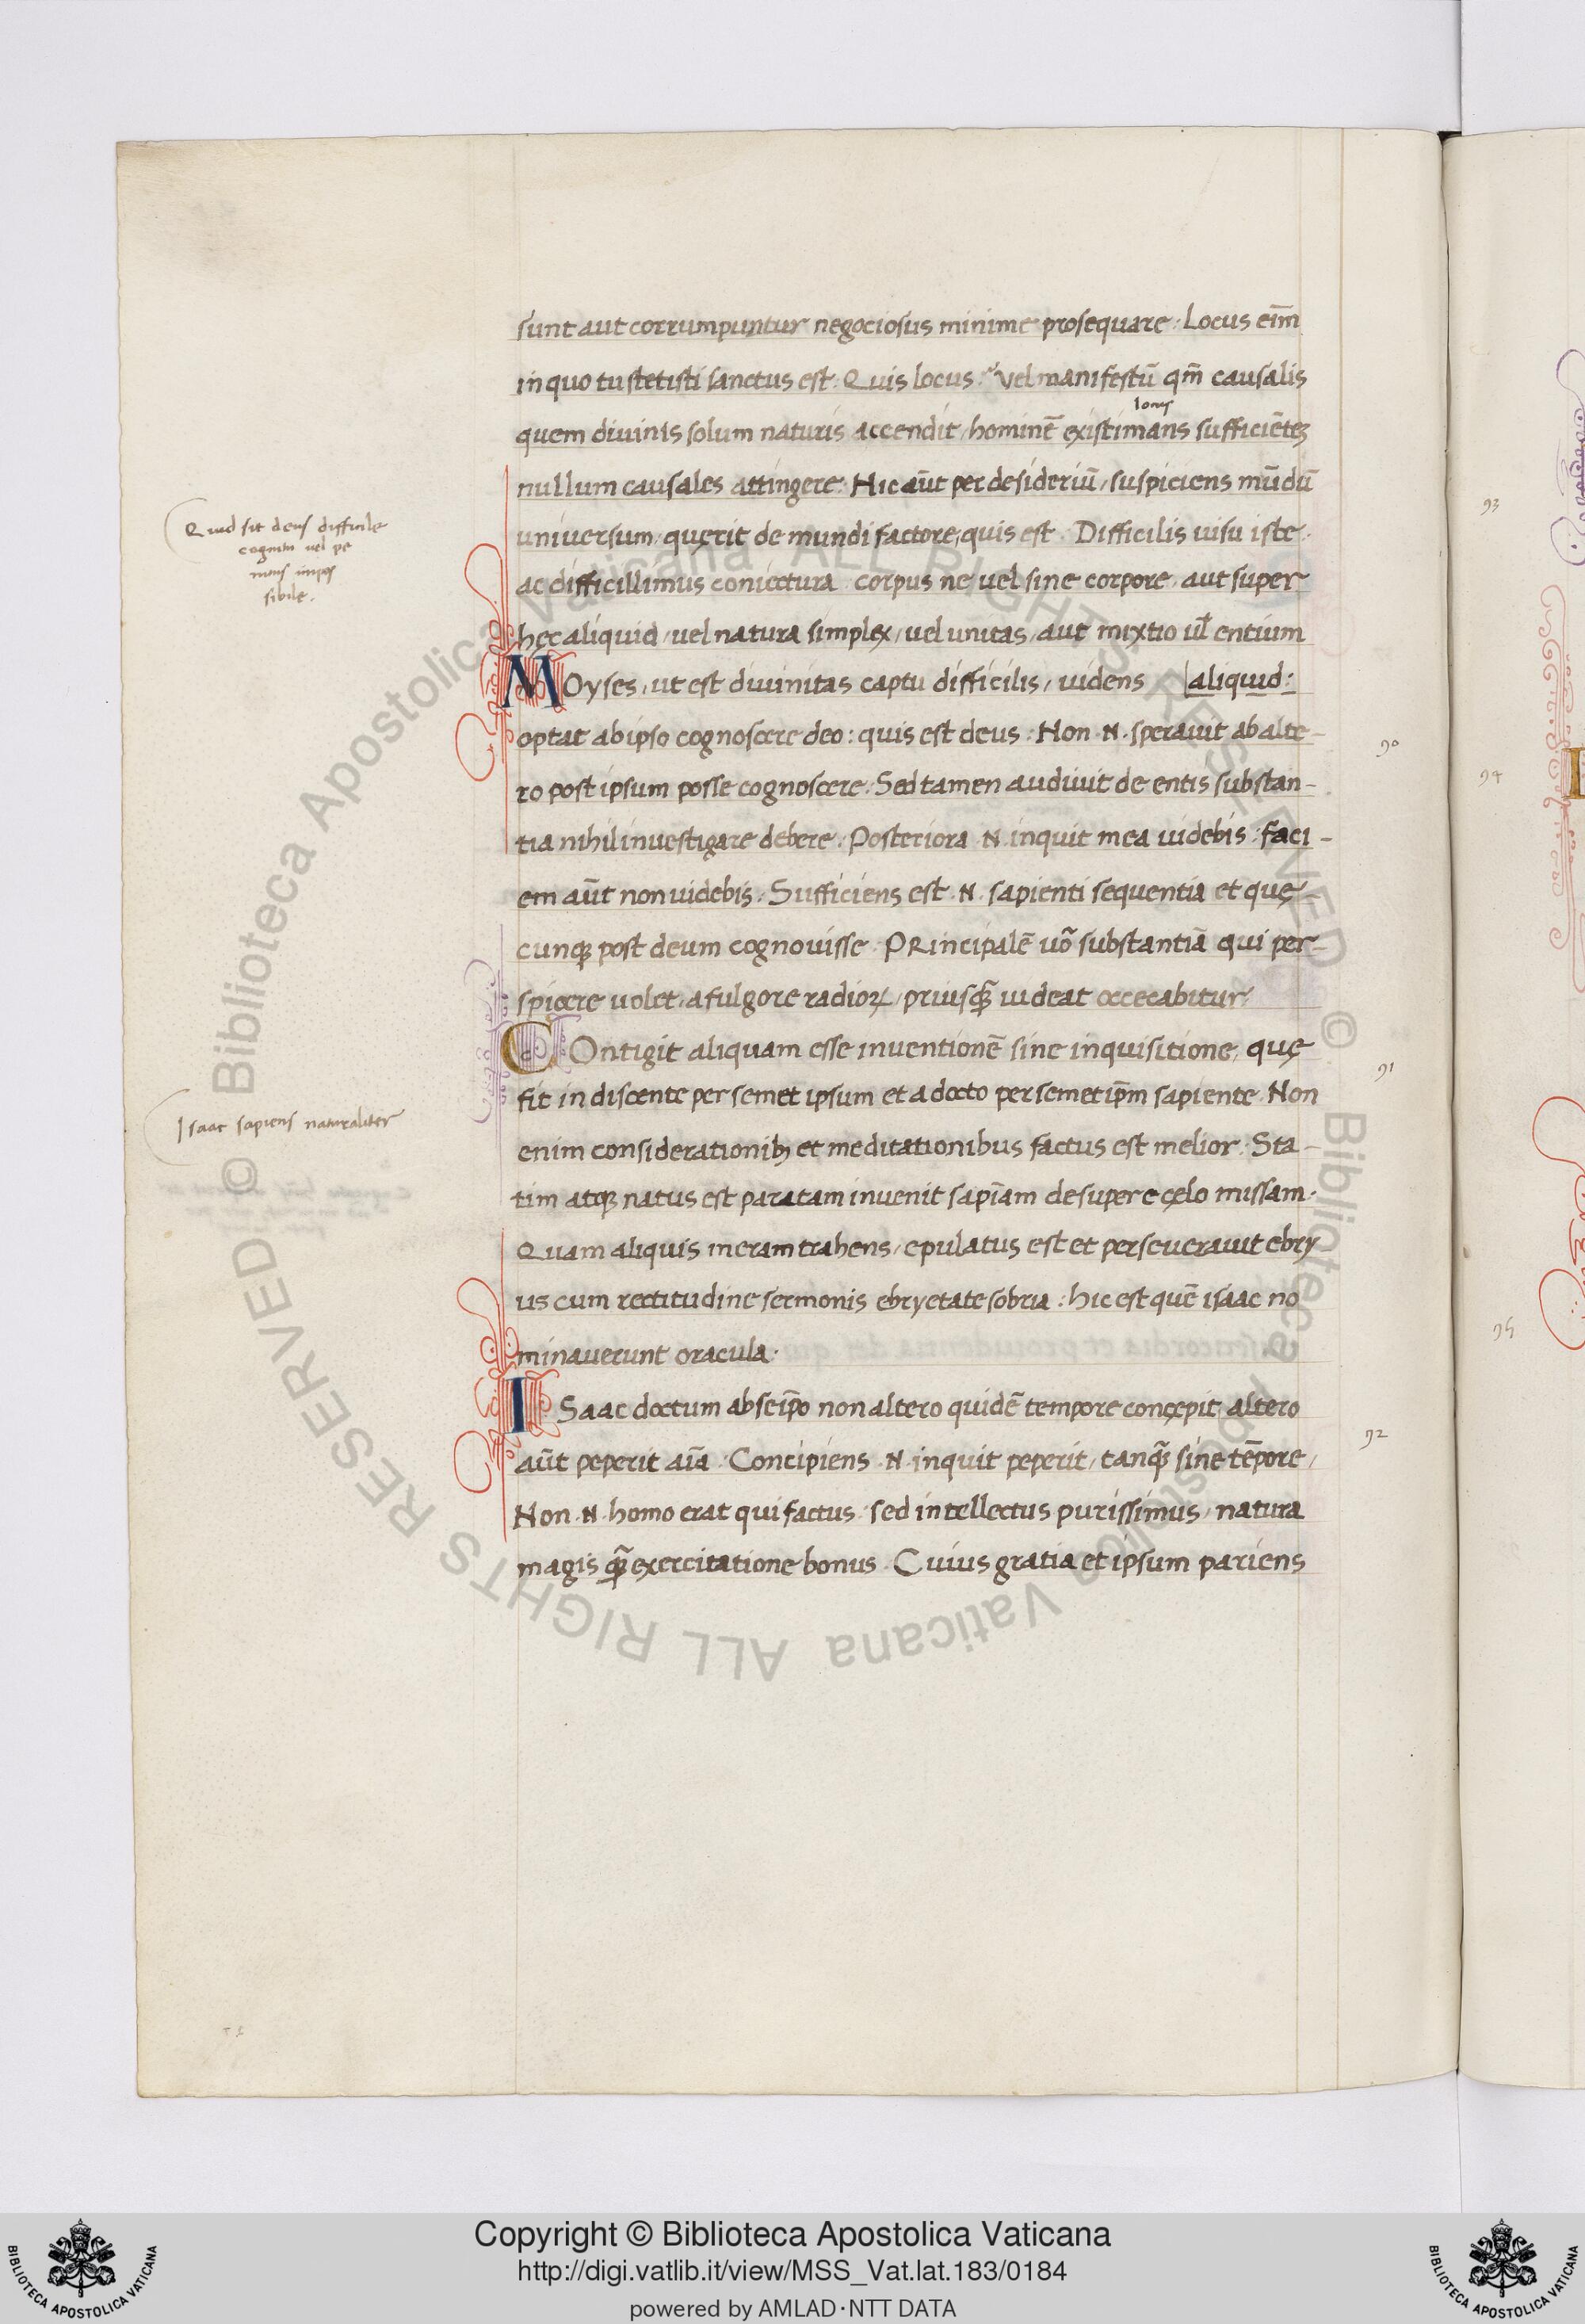 sunt aut corrumpuntur negociosus minime prosequare : Locus eim̄
in quo tu stetisti sanctus est : Quis locus : vel manifestū qm̄ causalis
quem diuinis solum naturis accendit / hominē existimans sufficiētez
nullum causales attingere : Hic aūt per desideriū / suspiciens mūdū
uniuersum / quęrit de mundi factore, quis est . Difficilis uisu iste .
ac difficillimus coniectura . corpus ne uel sine corpore / aut super
hęc aliquid / uel natura simplex / uel unitas / aut mixtio ul̄ entium
aliquid :
MOyses, ut est diuinitas captu difficilis, uidens
optat ab ipso cognoscere deo : quis est deus : Non .N. sperauit ab alte-
ro post ipsum posse cognoscere : Sed tamen audiuit de entis substan-
tia nihil inuestigare debere : Posteriora .N. inquit mea uidebis : faci-
em aūt non uidebis . Sufficiens est .N. sapienti sequentia et quę-
cunqꝫ post deum cognouisse . PRincipalē uō substantiā qui per-
spicere uolet, a fulgore radioꝝ, priusqꝫ̄ uideat occecabitur :
COntigit aliquam esse inuentionē sine inquisitione, quę
fit in discente per semet ipsum et a docto per semet ip̄m sapiente . Non
enim considerationibꝫ et meditationibus factus est melior : Sta-
tim atqꝫ natus est paratam inuenit sapīam desuper e cęlo missam .
Quam aliquis meram trahens / epulatus est et perseuerauit ebry
us cum rectitudine sermonis ebryetate sobria : hic est quē isaac no
minauerunt oracula .
ISaac doctum ab seip̄o non altero quidē tempore concępit altero
aūt peperit aīa : Concipiens .N. inquit peperit, tanqꝫ̄ sine tēpore /
Non .N. homo erat qui factus : sed intellectus purissimus / natura
magis qꝫ̄ exercitatione bonus . Cuius gratia et ipsum pariens
Quid sit deus difficile
cognitu uel pe
nitus impos
sibile .
Isaac sapiens naturaliter
90
91
92
93
94
95
© Biblioteca Apostolica Vaticana ALL RIGHTS RESERVED
© Biblioteca Apostolica Vaticana ALL RIGHTS RESERVED
Copyright © Biblioteca Apostolica Vaticana
http://digi.vatlib.it/view/MSS_Vat.lat.183/0184
powered by AMLAD · NTT DATA
BIBLIOTECA APOSTOLICA VATICANA
BIBLIOTECA APOSTOLICA VATICANA